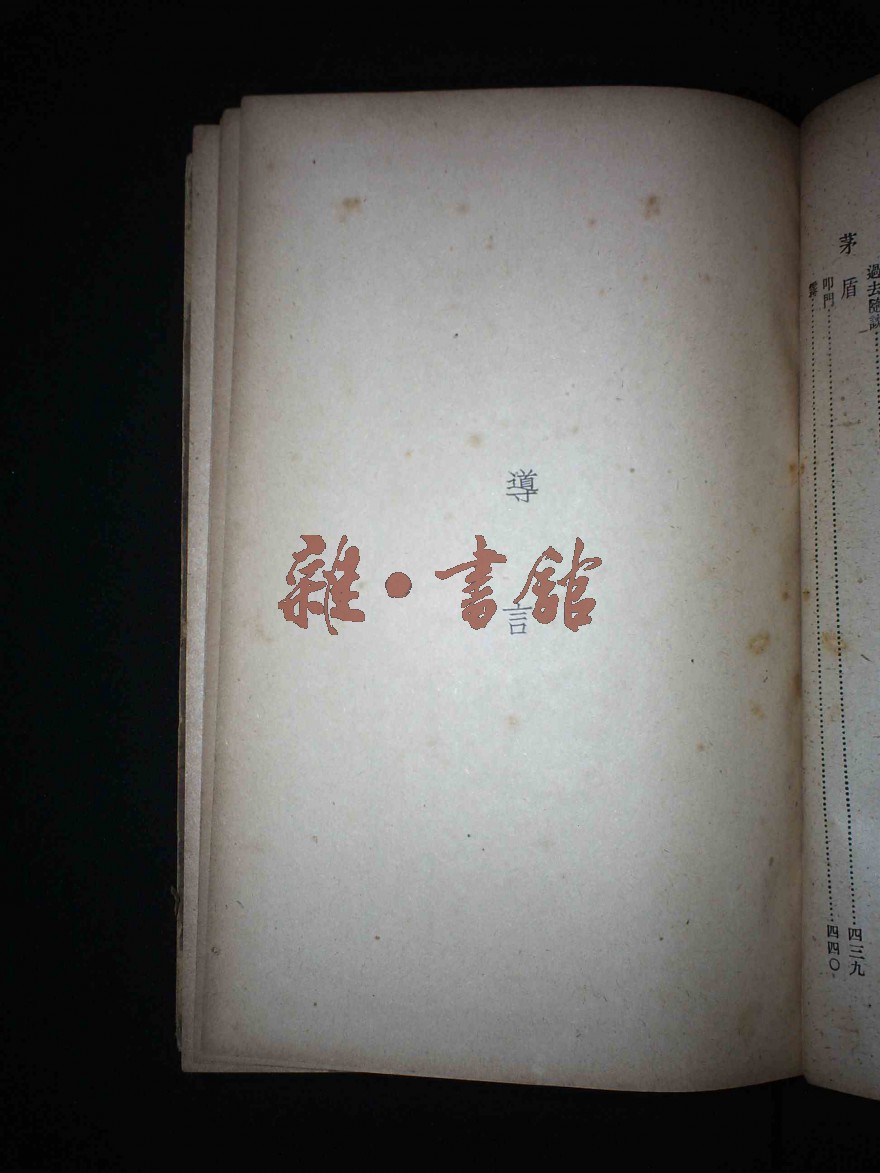 過去隨談
茅盾
叩門……四三九
霧……四四〇
導言
雜·書館